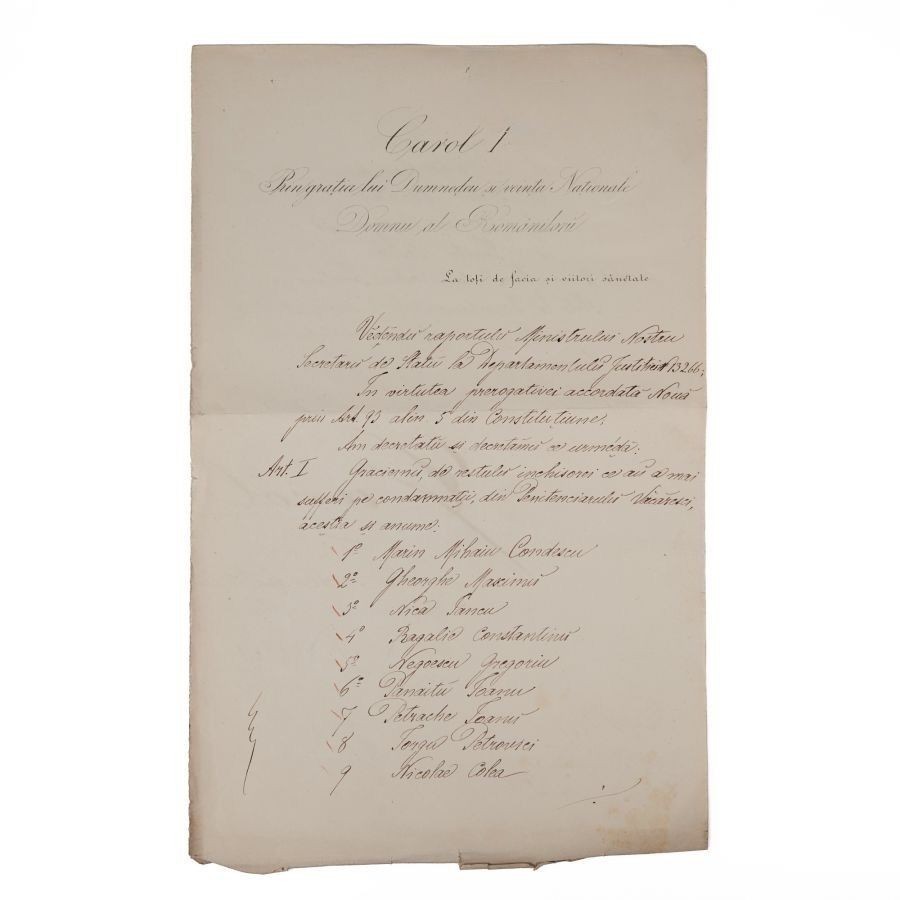 Carol I
Prin grația lui Dumnedeu și vointa Nationale
Domnu al Românilorŭ
La toți de facia și viitori sănetate
Vĕdêndŭ raportulŭ Ministrului Nostru
Secretarŭ de Statŭ la Departamentulŭ Justitiei N 13266;
În virtutea prerogativei accordată Nouă
prin Art. 93 alin. 5 din Constituțiune,
Am decretatŭ și decretămŭ ce urmédă:
Art. I Graciemŭ, de restulŭ inchisorei ce aŭ a mai
sufferi pe condamnații, din Penitenciarulŭ Văcăresci,
aceștia și anume:
1º Marin Mihaiu Condescu
2º Gheorghe Maximŭ
3º Nică Iancu
4º Ragalie Constantinŭ
5º Negoescu Gregoriu
6º Panaitŭ Ioanu
7 Petrache Ioanŭ
8 Iorgu Petrovici
9 Nicolae Colea